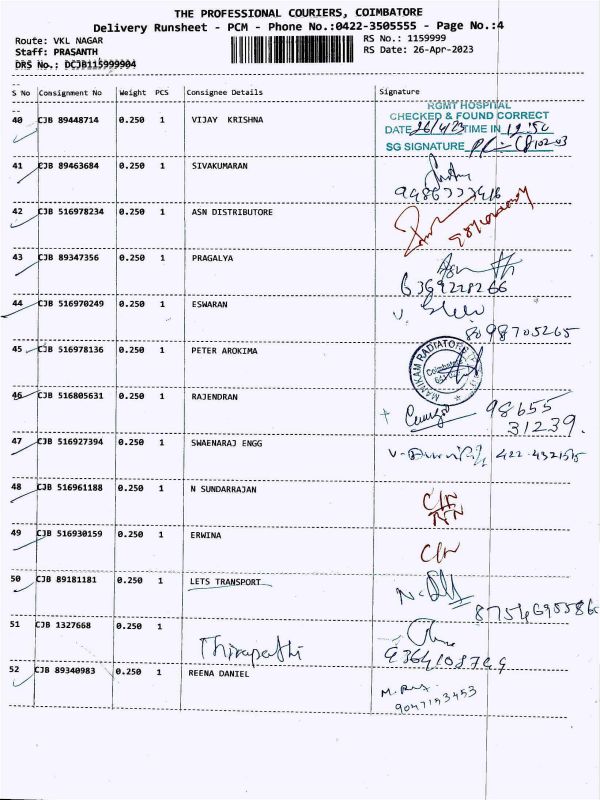 THE PROFESSIONAL COURIERS, COIMBATORE
Delivery Runsheet - PCM - Phone No.:0422-3505555 - Page No.:4
Route: VKL NAGAR RS No.: 1159999
Staff: PRASANTH RS Date: 26-Apr-2023
DRS No.: DCJB115999904
S No Consignment No Weight PCS Consignee Details Signature
RGMT HOSPITAL
40 CJB 89448714 0.250 1 VIJAY KRISHNA CHECKED & FOUND CORRECT
DATE 26/4/23 TIME IN 12:50
SG SIGNATURE
41 CJB 89463684 0.250 1 SIVAKUMARAN
9486777416
42 CJB 516978234 0.250 1 ASN DISTRIBUTORE
43 CJB 89347356 0.250 1 PRAGALYA
6369228266
44 CJB 516970249 0.250 1 ESWARAN
8098705265
45 CJB 516978136 0.250 1 PETER AROKIMA MANIKAM RADIATORE Coimbatore
46 CJB 516805631 0.250 1 RAJENDRAN 98655
31239.
47 CJB 516927394 0.250 1 SWAENARAJ ENGG 422-4321515
48 CJB 516961188 0.250 1 N SUNDARRAJAN
49 CJB 516930159 0.250 1 ERWINA
50 CJB 89181181 0.250 1 LETS TRANSPORT
51 CJB 1327668 0.250 1 Thirupathi
52 CJB 89340983 0.250 1 REENA DANIEL
9047153453